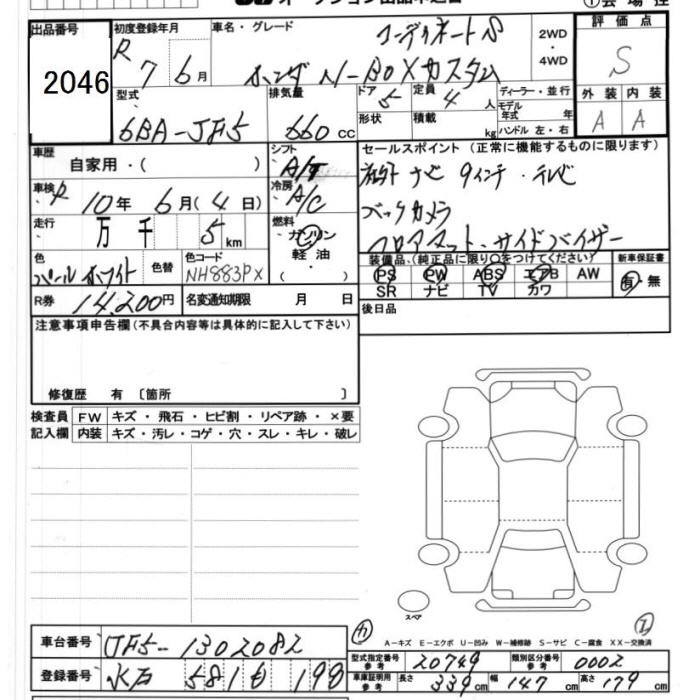 オークション出品申込書
出品番号 2046
初度登録年月 R 7年 6月
車名・グレード コーディネートS
ホンダ N-BOXカスタム
2WD・4WD
評価点 S
外装 A 内装 A
型式 6BA-JF5
排気量 660 cc
ドア 5 定員 4 人
形状 積載 kg
ディーラー・並行
モデル年式 年
ハンドル 左・右
車歴 自家用・( )
シフト A/T
冷房 A/C
車検 R 10年 6月(4日)
走行 万 千 5 km
燃料 ガソリン 軽油・( )
色 パールホワイト 色替
色コード NH883PX
R券 14,200円 名変通知期限 月 日
セールスポイント(正常に機能するものに限ります)
ナビ 9インチ・テレビ
バックカメラ
フロアマット、サイドバイザー
装備品(純正品に限り○をつけてください)
PS PW ABS エアB AW
SR ナビ TV カワ
新車保証書 有・無
後日品
注意事項申告欄(不具合内容等は具体的に記入して下さい)
修復歴 有〔箇所 〕
検査員記入欄
FW キズ・飛石・ヒビ割・リペア跡・×要
内装 キズ・汚レ・コゲ・穴・スレ・キレ・破レ
スペア
A-キズ E-エクボ U-凹み W-補修跡 S-サビ C-腐食 XX-交換済
車台番号 JF5-1302082
登録番号 水戸 581 も 198
型式指定番号 参考 20749 類別区分番号 参考 0002
車庫証明用 参考 長さ 339cm 幅 147cm 高さ 179cm